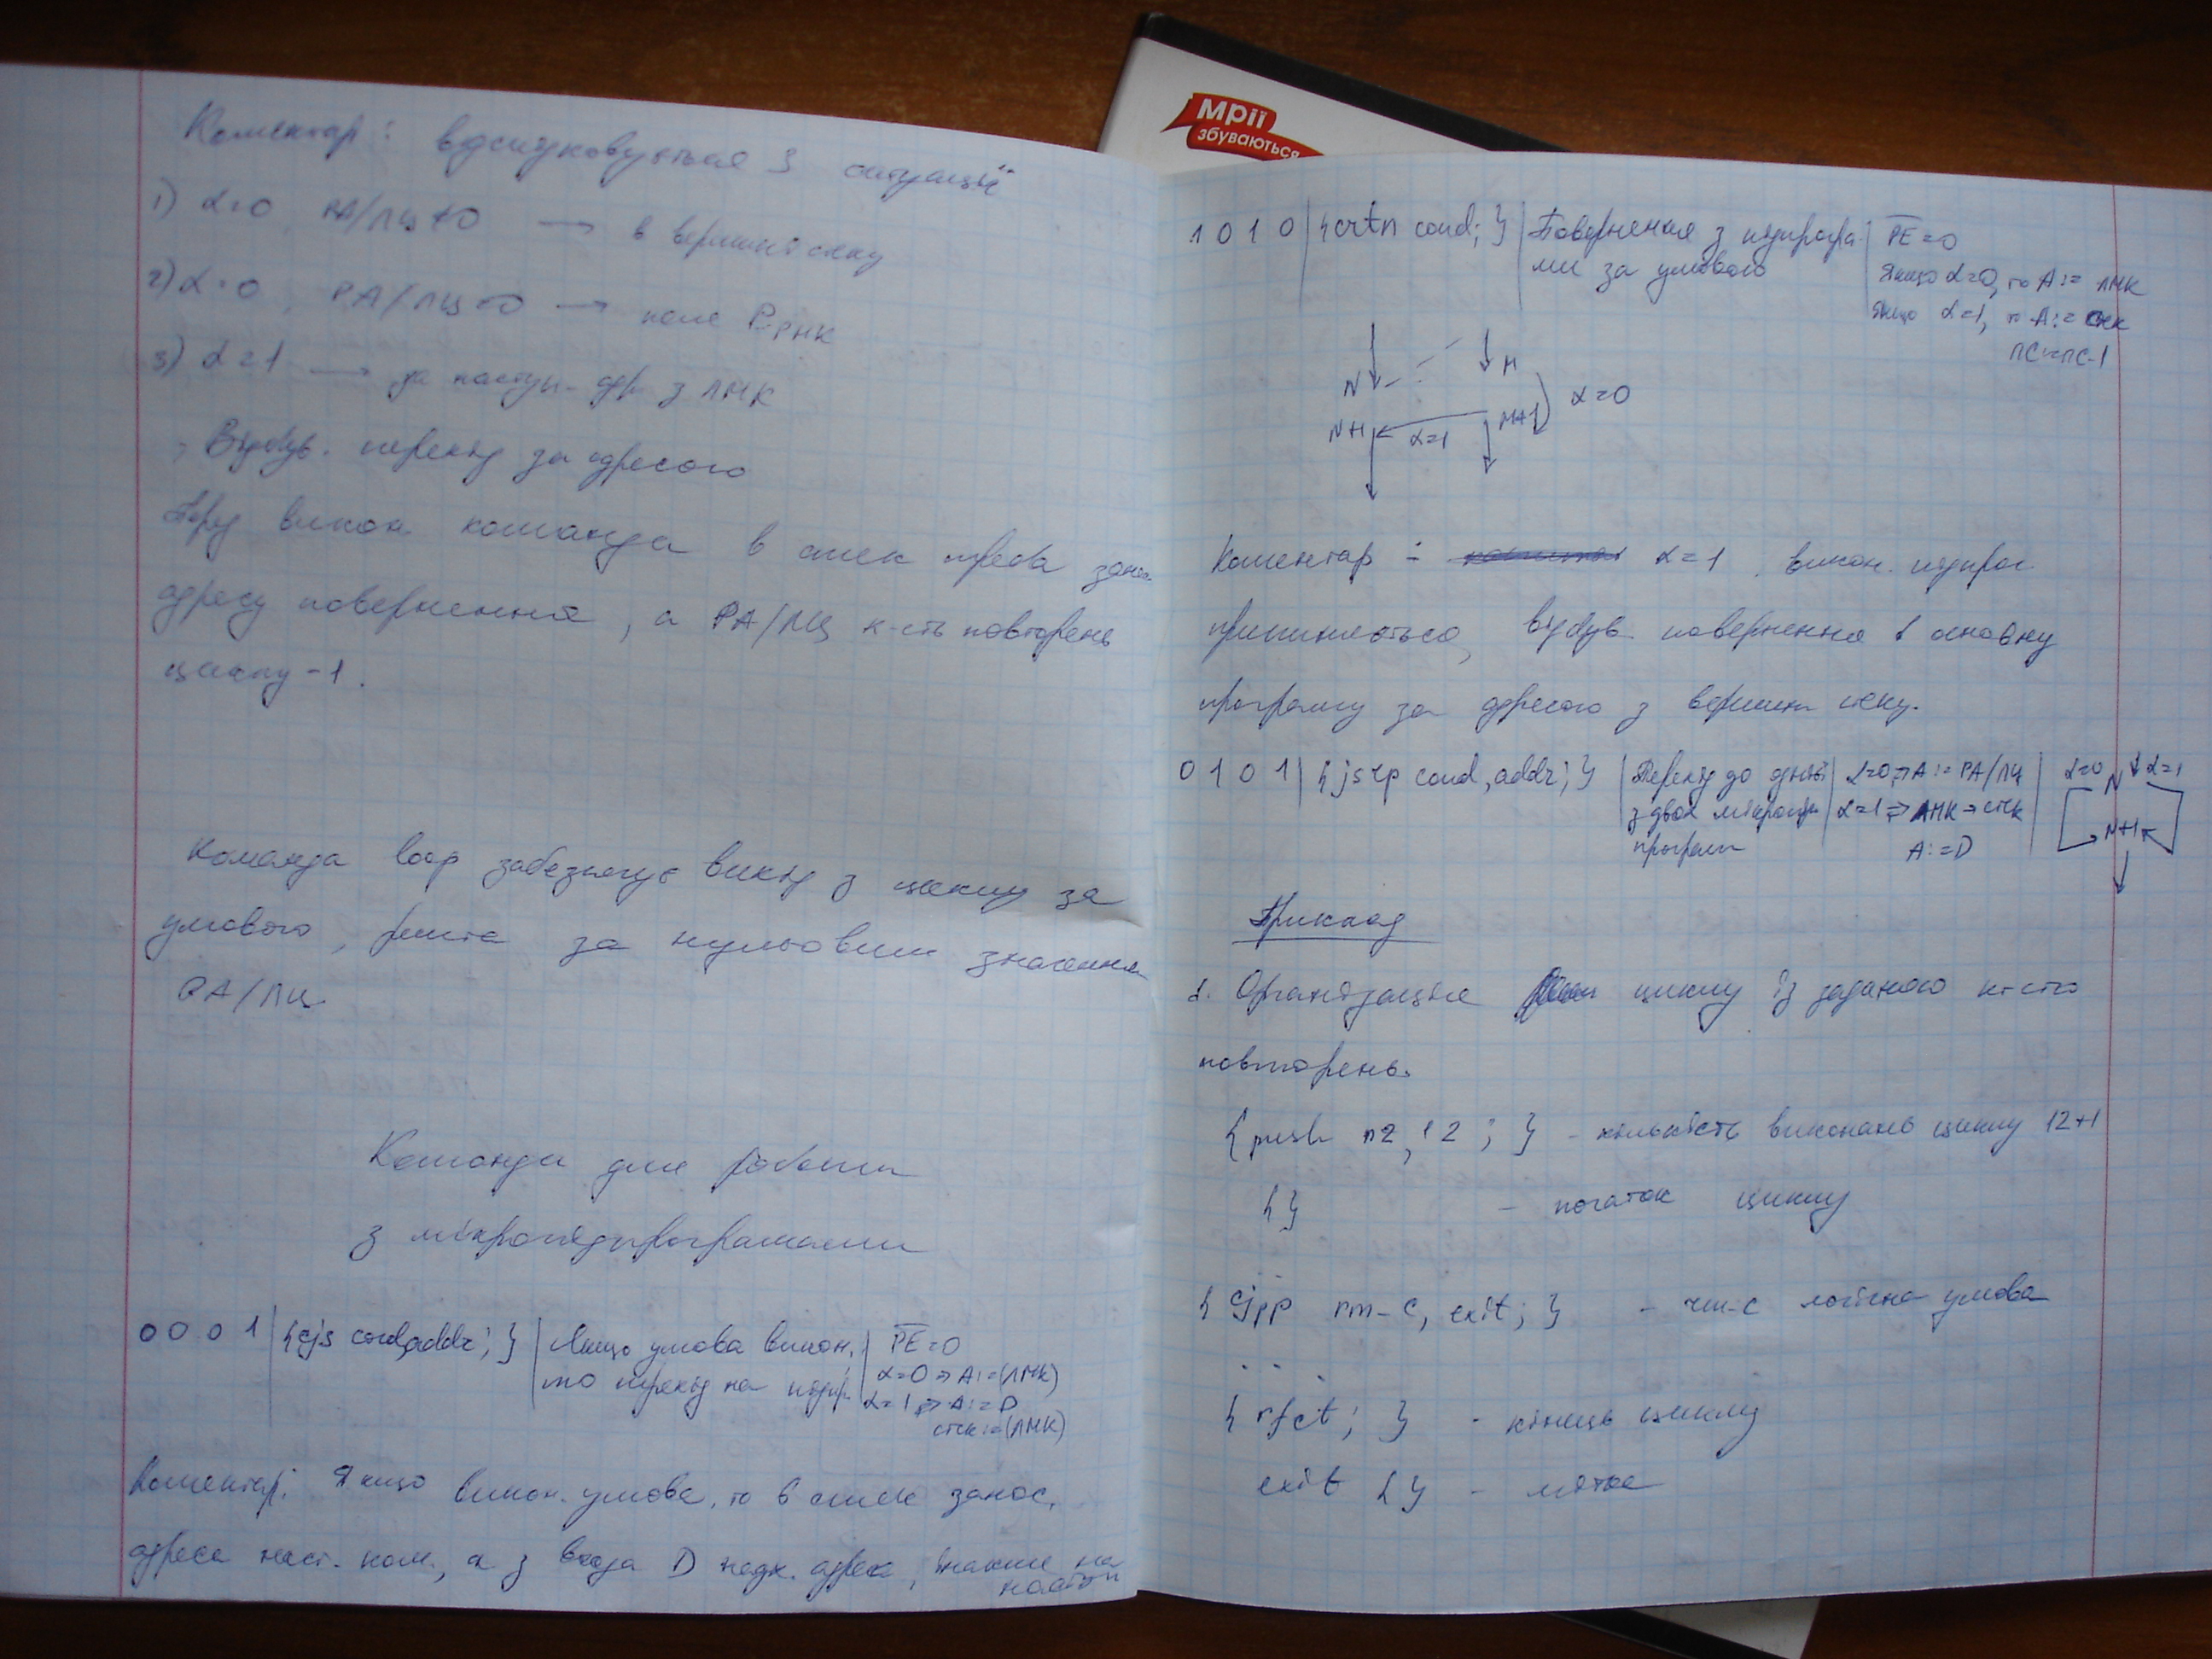 Мрії
збуваються
Коментар: відслідковується 3 ситуації
1) α=0, РА/ЛЦ≠0 → в вершині стеку
2) α=0, РА/ЛЦ=0 → поле
3) α=1 → за наступ. адр з ЛМК
Відбув. перехід за адресою
Перед викон. команди в стек треба занес.
адресу повернення, а РА/ЛЦ к-сть повторень
циклу -1.
Команда loop забезпечує вихід з циклу за
умовою, решта за нульовим значенням
РА/ЛЦ
Команди для роботи
з мікропідпрограмами
0 0 0 1 | {cjs cond,addr;} | Якщо умова викон., | P̅E̅=0
то перехід на підпр. | α=0 ⇒ A:=(ЛМК)
α=1 ⇒ A:=D
стек:=(ЛМК)
Коментар: Якщо викон. умова, то в стек занос.
адреса наст. ком., а з входа D надх. адреса, інакше на
наступ
1 0 1 0 | {crtn cond;} | Повернення з підпрогра- | P̅E̅=0
ми за умовою | Якщо α=0, то A:= ЛМК
Якщо α=1, то A:= стек
ПС:=ПС-1
N M
α=0
N+1 α=1 M+1
Коментар: α=1. викон. підпрог
припиняється, відбув. повернення в основну
програму за адресою з вершини стеку.
0 1 0 1 | {jsrp cond,addr;} | Перехід до однієї | α=0 ⇒ A:= РА/ЛЦ | α=0 N α=1
з двох мікропідп | α=1 ⇒ ЛМК → стек | N+1
програм | A:=D
Приклад
1. Організація циклу із заданою к-стю
повторень.
{push nz, 12;} - кількість виконань циклу 12+1
{} - початок циклу
...
{cjpp rm-c, exit;} - rm-c логічна умова
...
{rfct;} - кінець циклу
exit {} - мітка